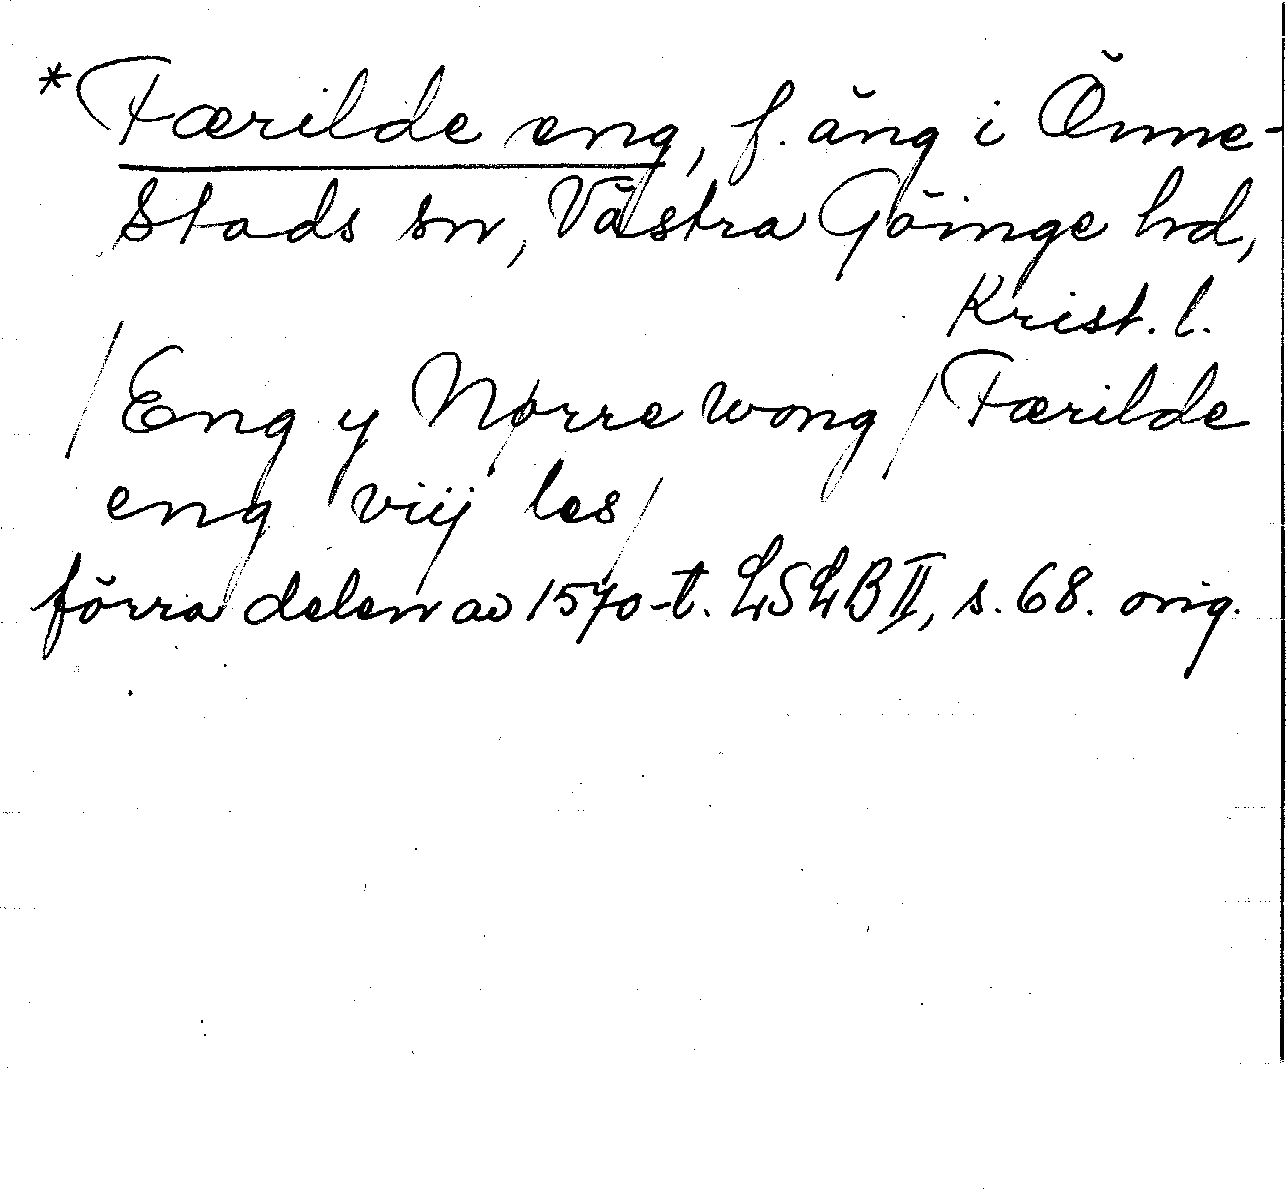 *Færilde eng, f. äng i Önne-
stads sn, Västra Göinge hd,
Krist. l.
/Eng y Nørre wong/Færilde
eng viij les/
förra delen av 1570-t. LSLB II, s. 68. orig.